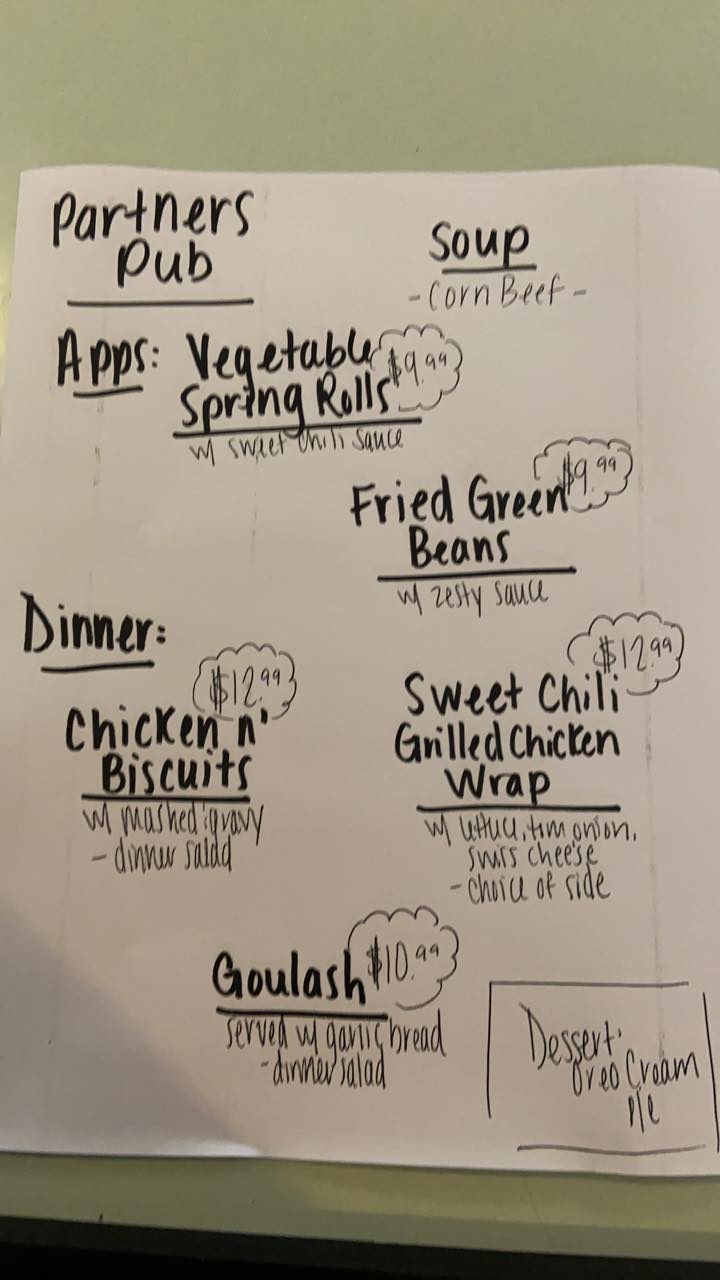 Partners
Pub
Soup
- Corn Beef -
Apps: Vegetable
Spring Rolls
$9.99
w/ sweet chili sauce
Fried Green
Beans
$9.99
w/ zesty sauce
Dinner:
$12.99
Chicken n'
Biscuits
w/ mashed gravy
- dinner salad
$12.99
Sweet Chili
Grilled Chicken
Wrap
w/ lettuce, tom, onion,
swiss cheese
- choice of side
Goulash
$10.99
served w/ garlic bread
- dinner salad
Dessert:
Oreo Cream
Pie